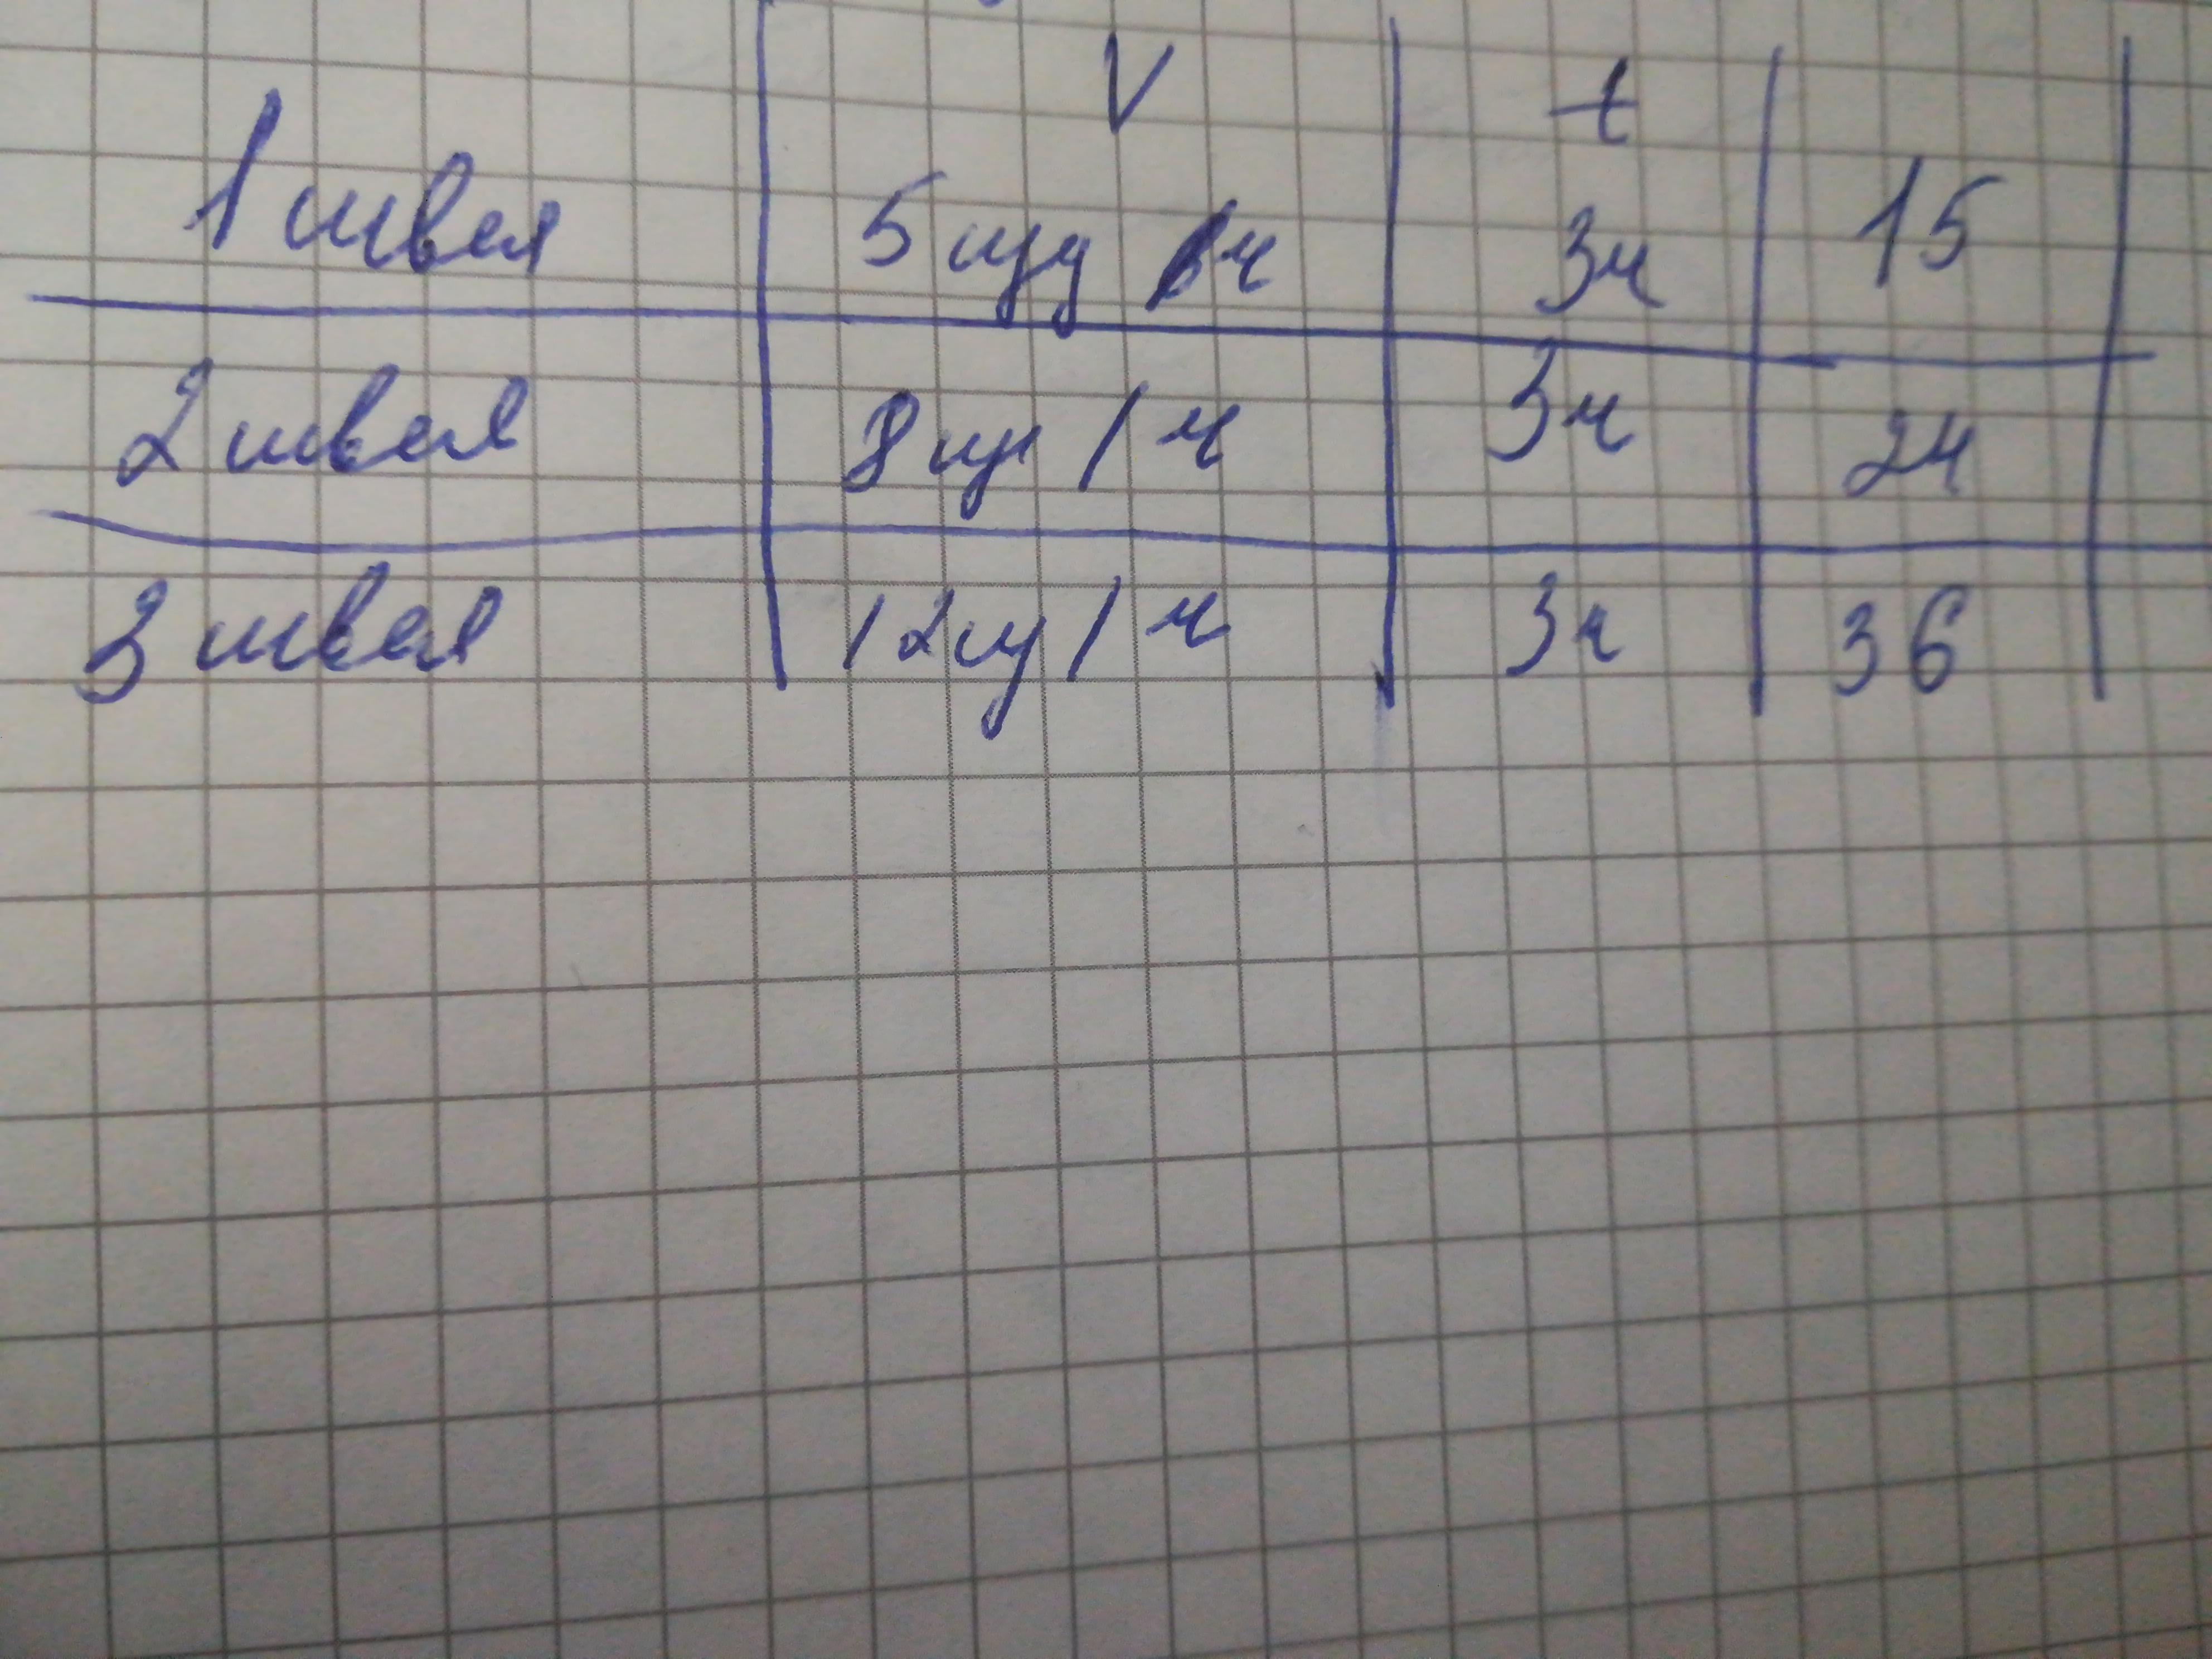 V t
1 швея 5 изд в ч 3ч 15
2 швея 8 из / ч 3ч 24
3 швея 12 из / ч 3ч 36